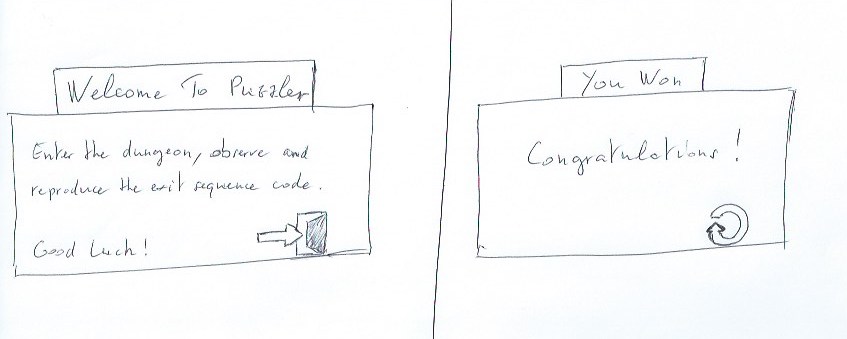 Welcome To Puzzler
Enter the dungeon, observe and
reproduce the exit sequence code.
Good Luck!
You Won
Congratulations!